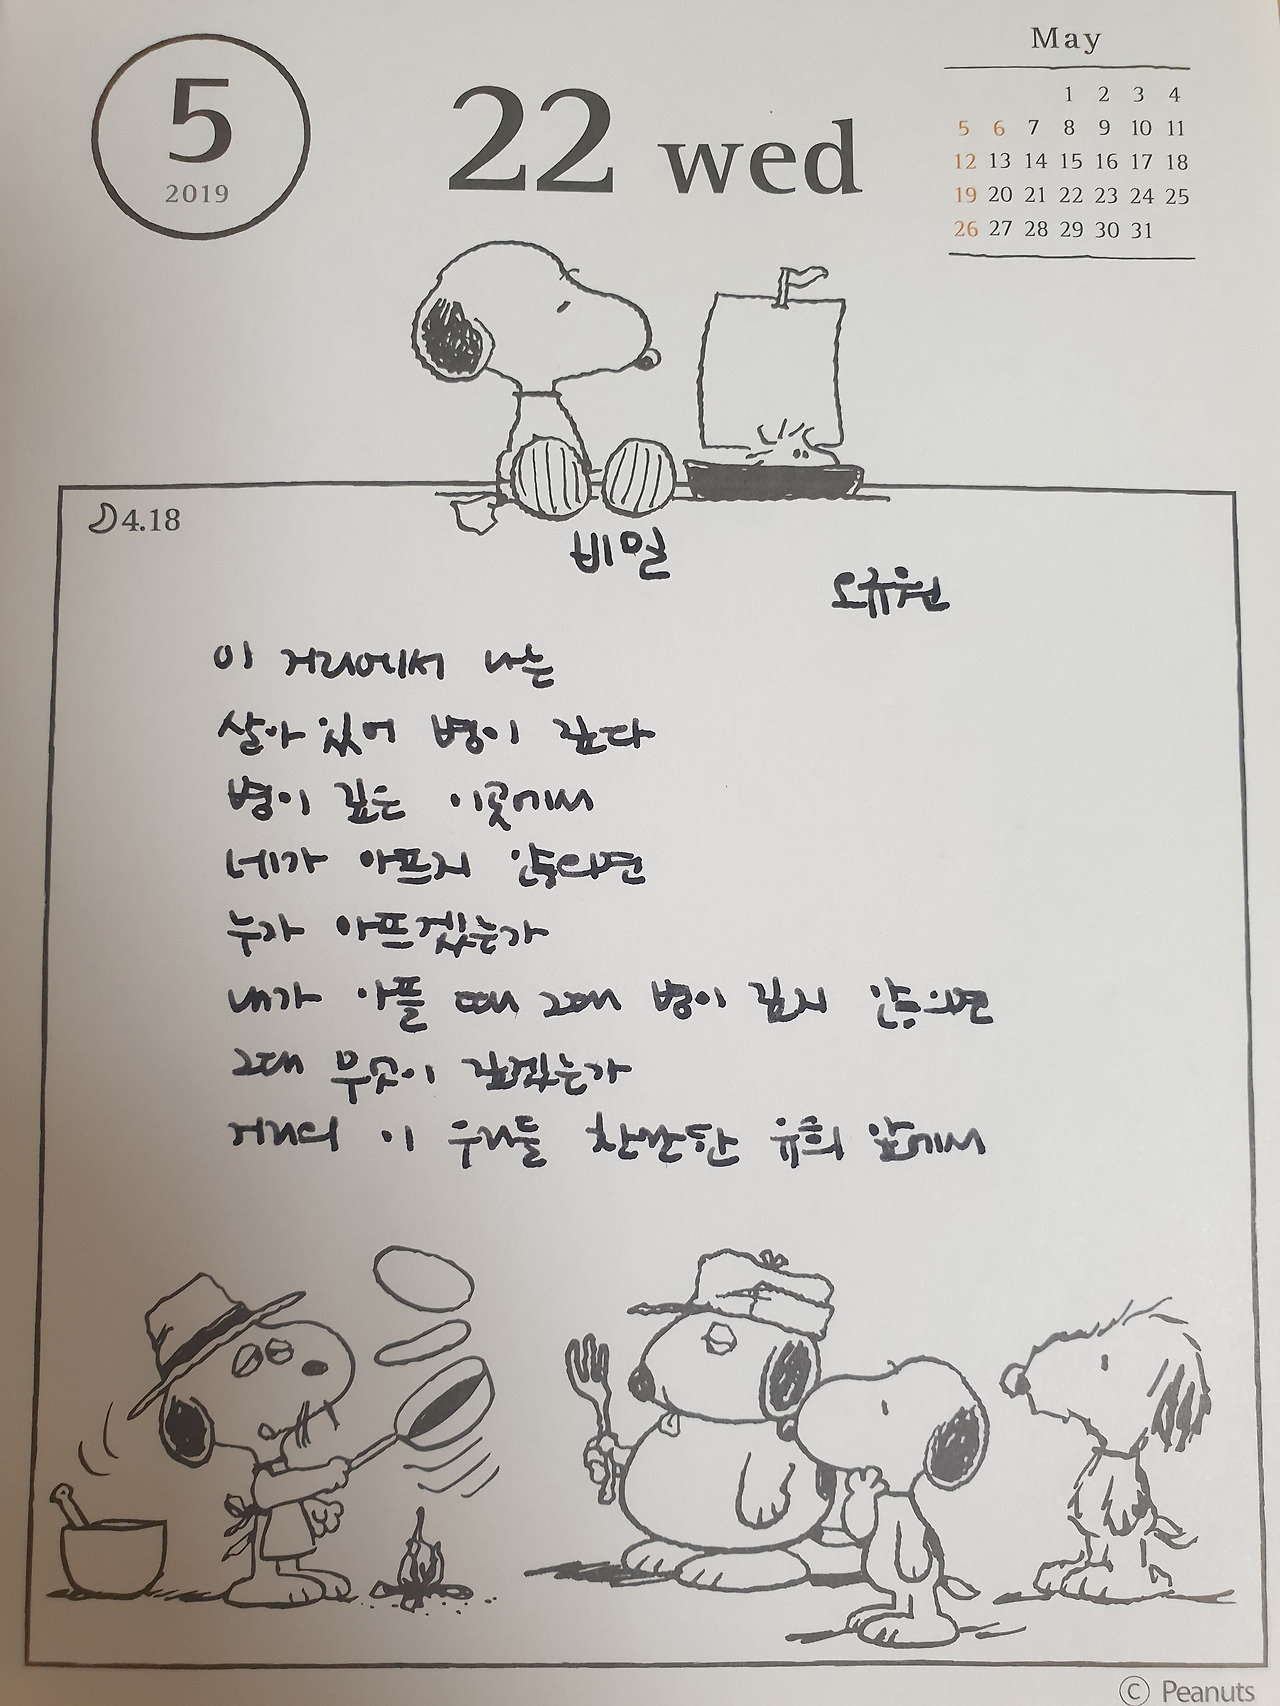 5
2019
22 wed
May
1 2 3 4
5 6 7 8 9 10 11
12 13 14 15 16 17 18
19 20 21 22 23 24 25
26 27 28 29 30 31
4.18
비일
오규원
이 거리에서 나는
살아 있어 병이 깊다
병이 깊은 이곳에서
네가 아프지 않으면
누가 아프겠는가
내가 아플 때 그때 병이 깊지 않으면
그때 무엇이 깊겠는가
거리의 이 우리들 찬란한 유희 앞에서
© Peanuts